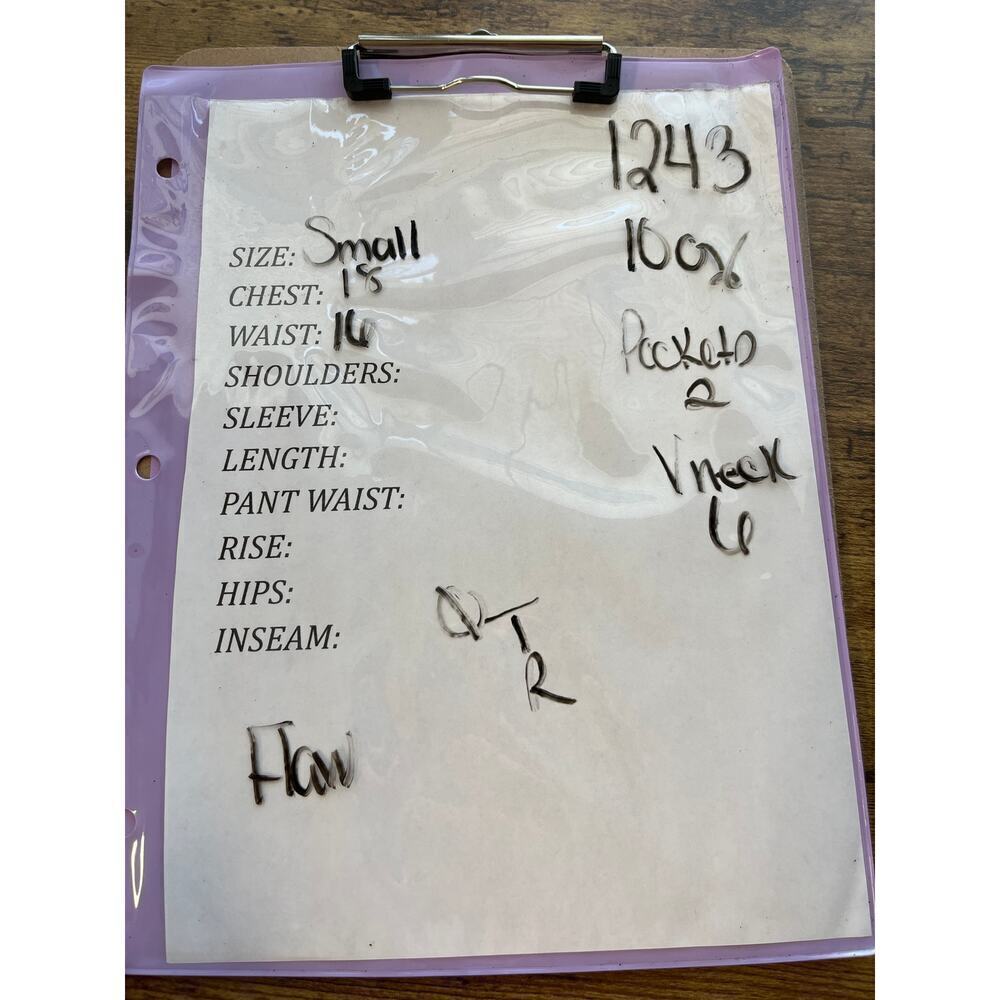 1243
SIZE: Small
10 oz
CHEST: 18
WAIST: 16
Pockets
2
SHOULDERS:
SLEEVE:
LENGTH:
V neck
6
PANT WAIST:
RISE:
HIPS:
INSEAM:
T
R
Flaw